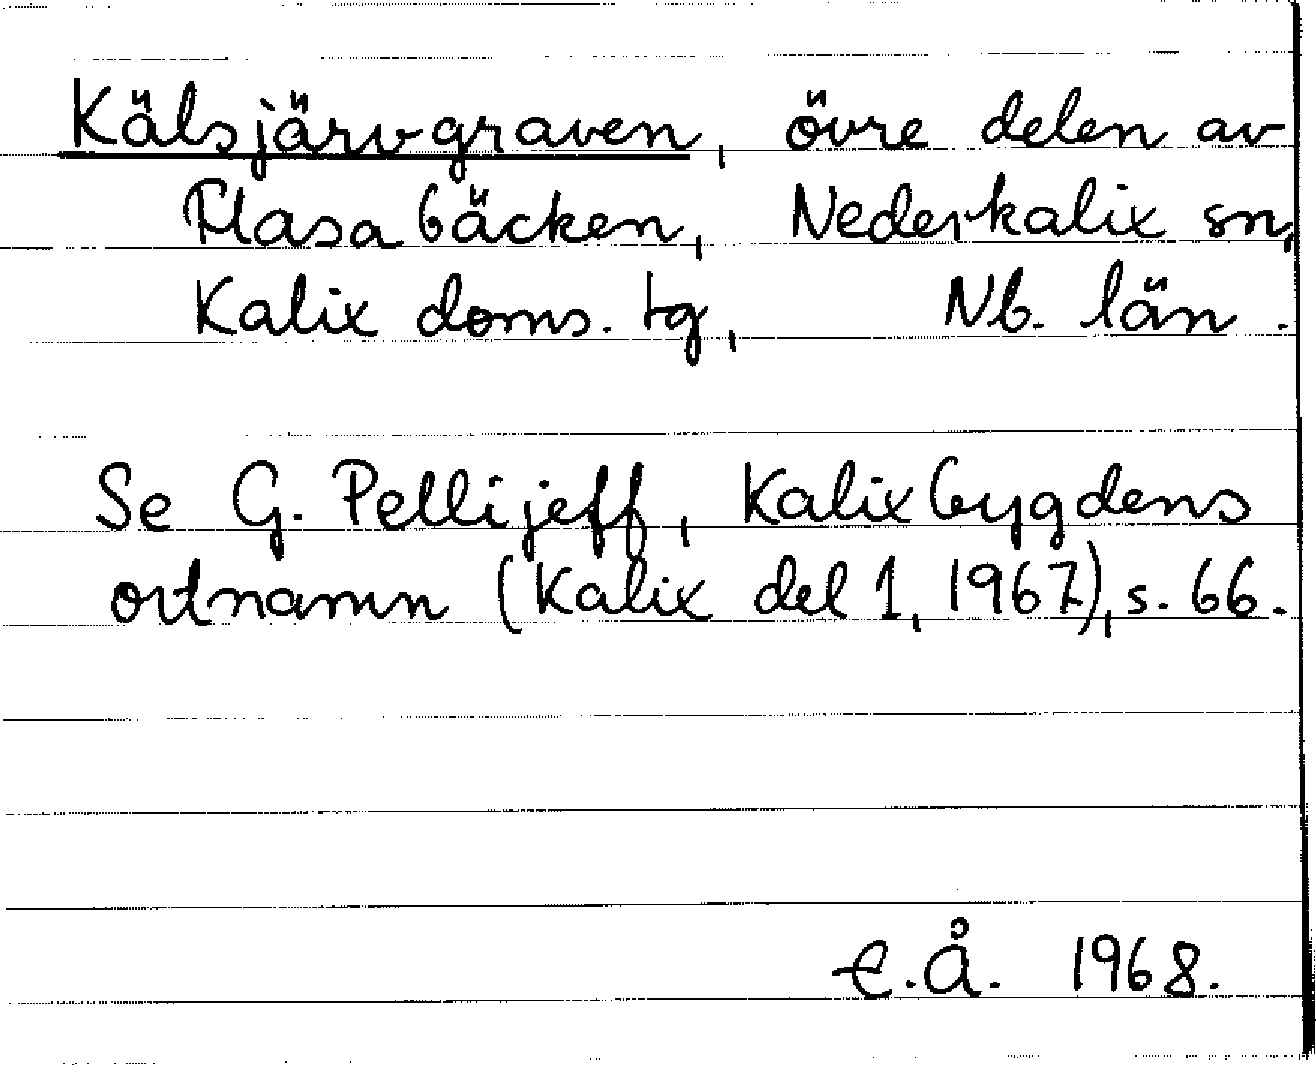 Kälsjärvgraven, övre delen av
Flasabäcken, Nederkalix sn,
Kalix doms. tg, Nb. län.
Se G. Pellijeff, Kalixbygdens
ortnamn (Kalix del 1, 1967), s. 66.
E.Å. 1968.